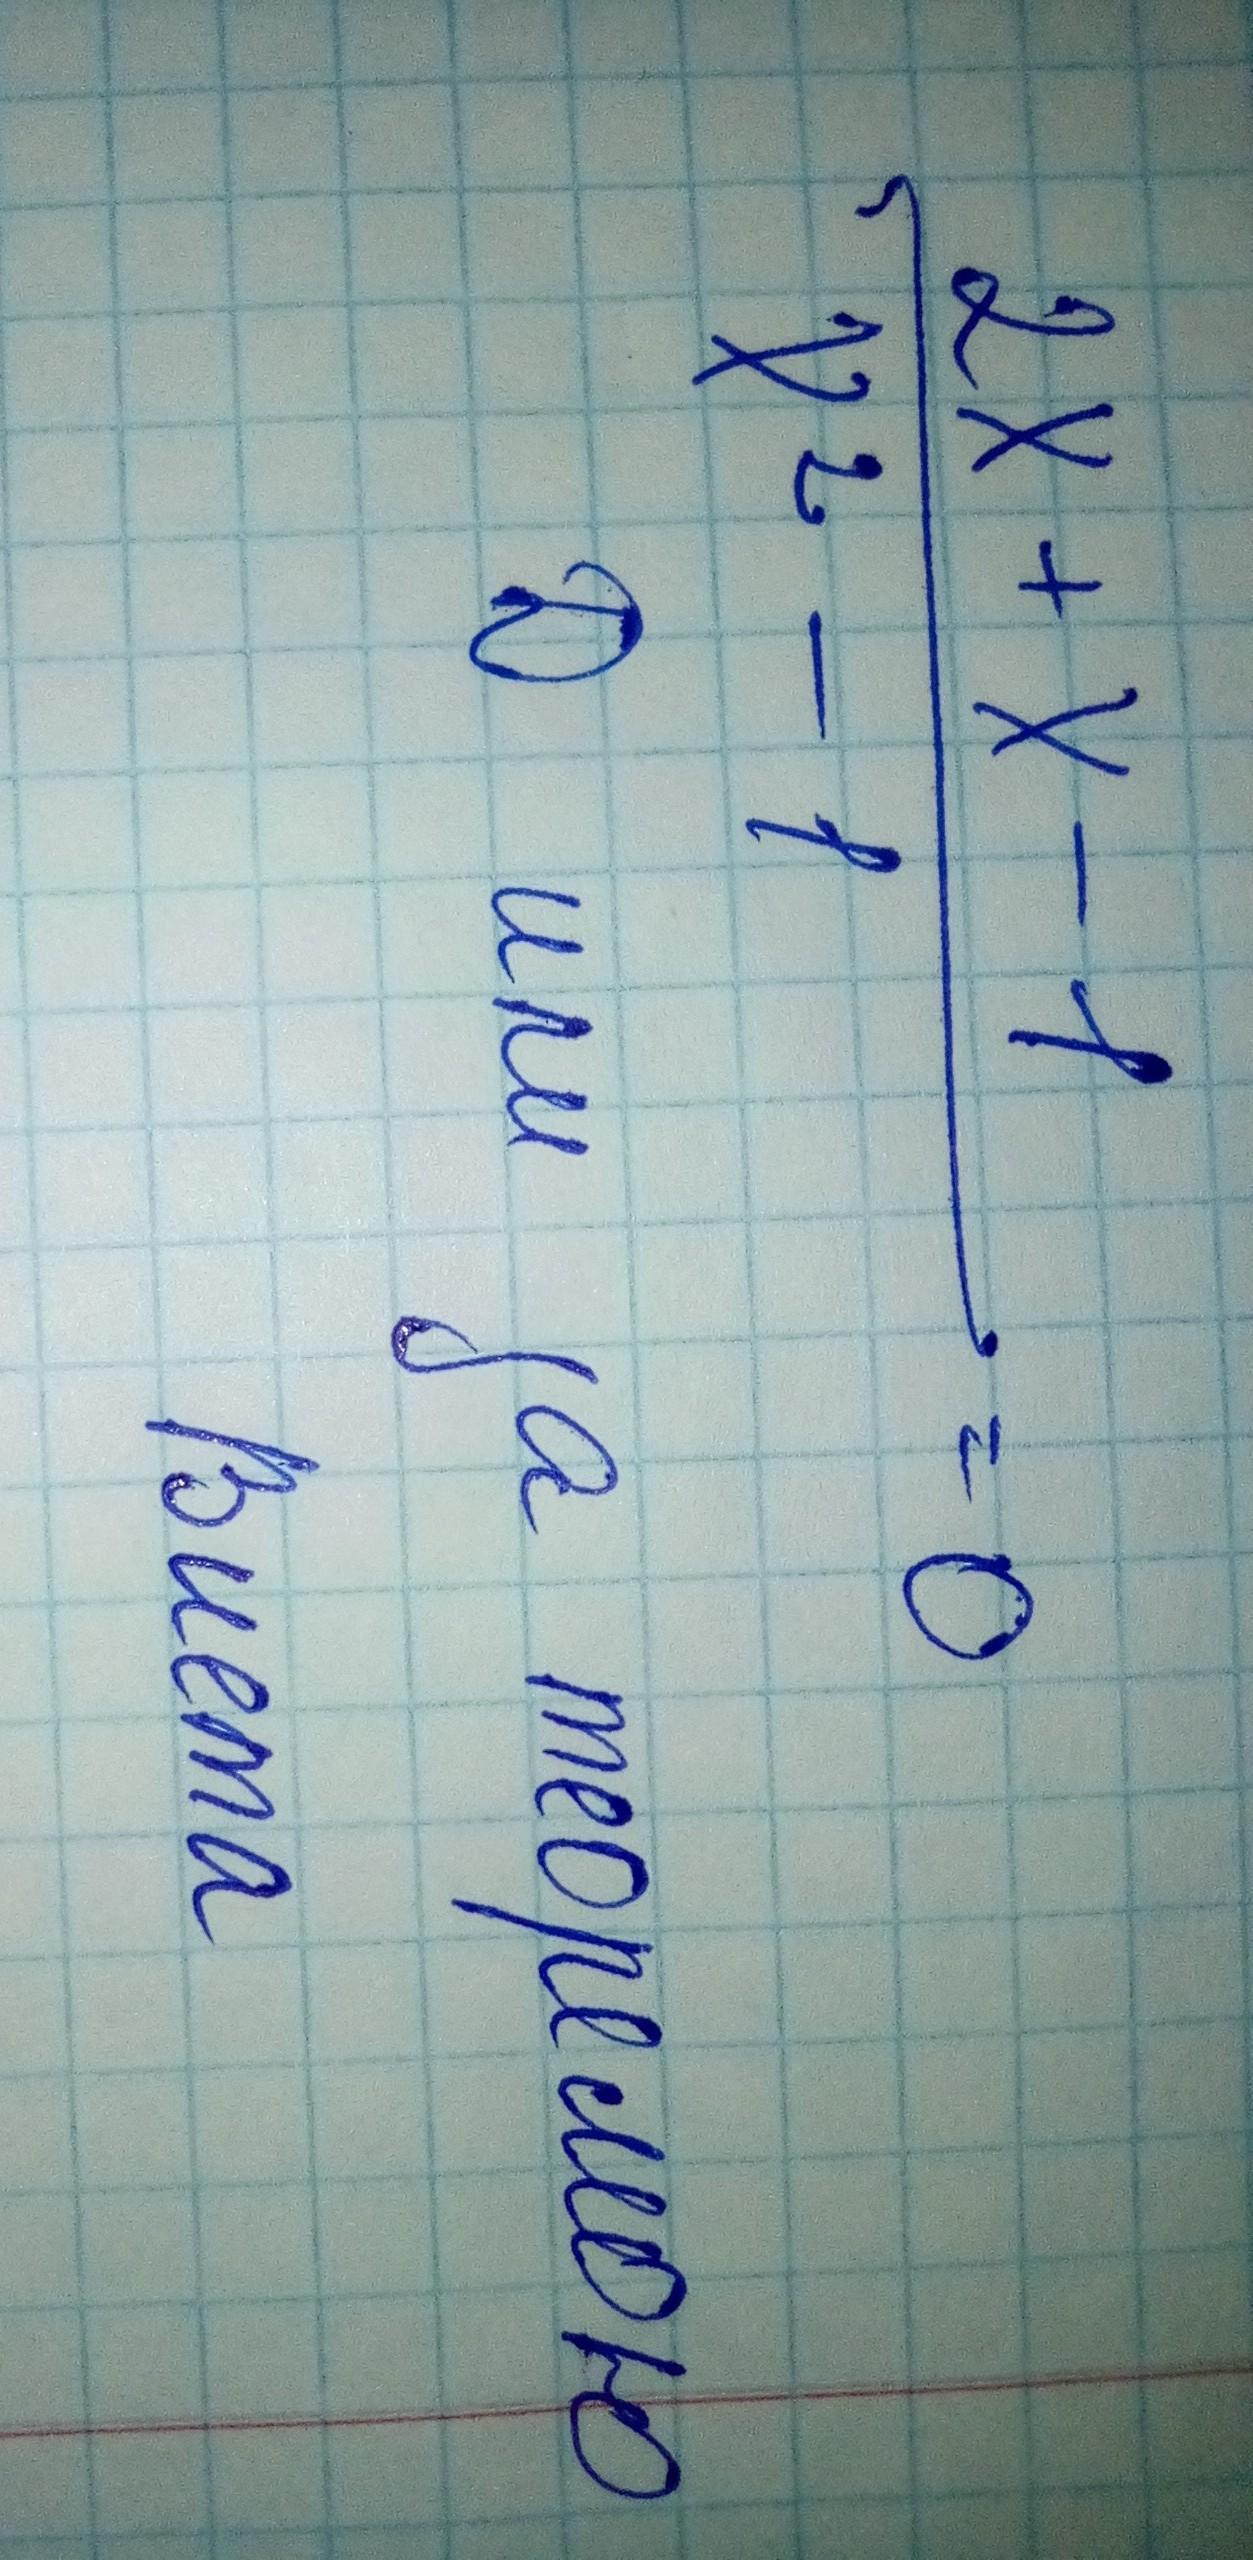 2x + x - 1
= 0
x² - 1
D или за теоремою
Виета